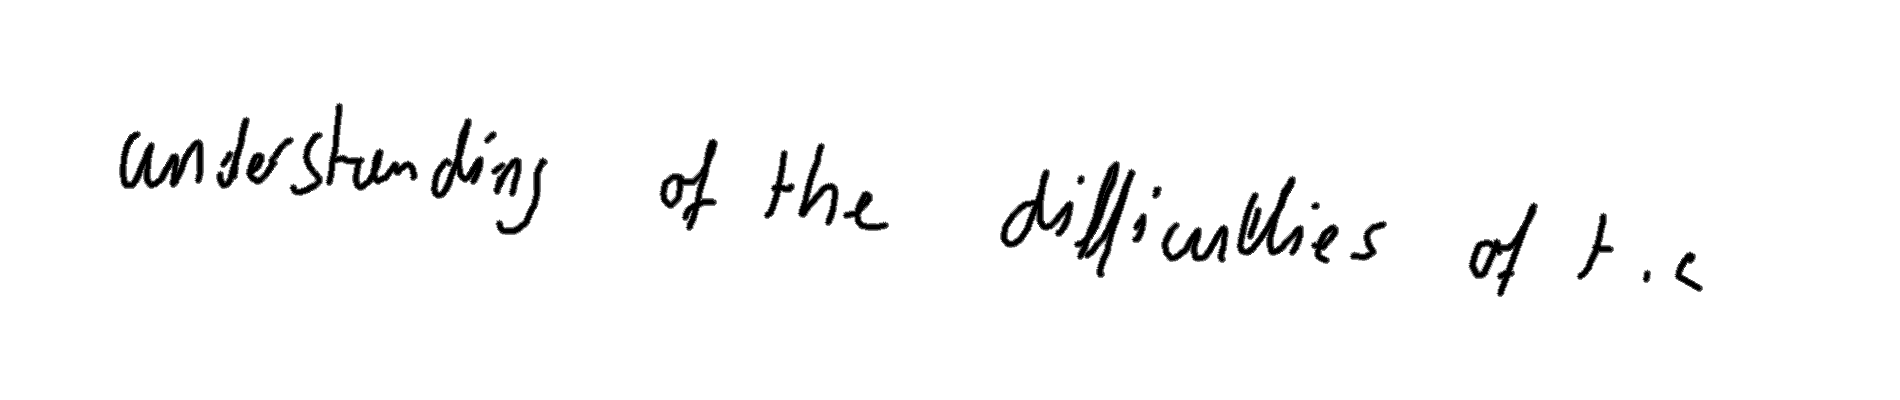 understanding of the difficulties of